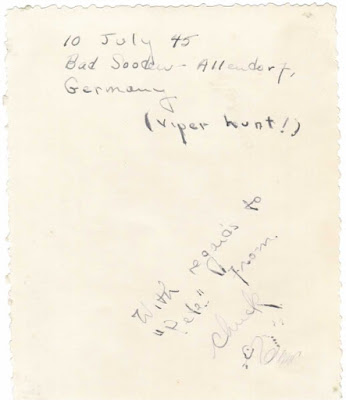 10 July 45
Bad Sooden - Allendorf,
Germany
(Viper hunt!)
With regards to
"Pek" from
Chuck